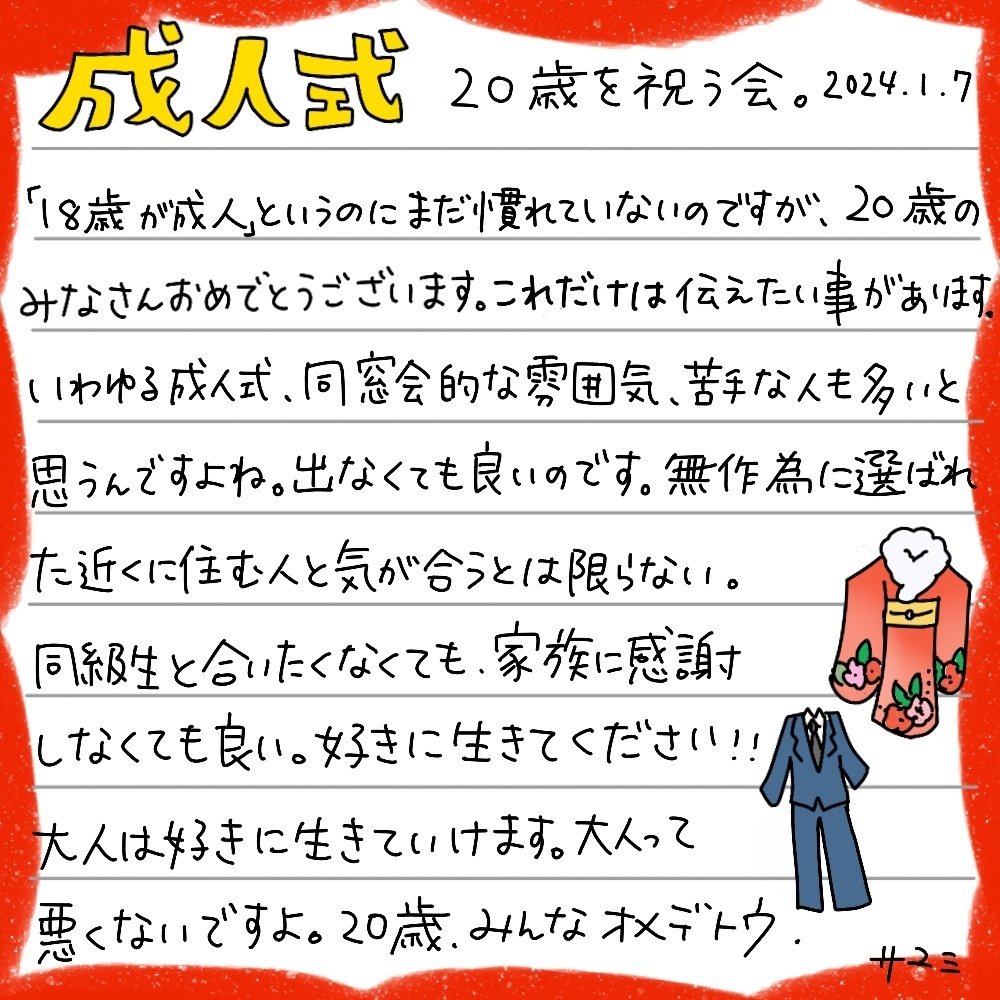 成人式 20歳を祝う会。2024.1.7
「18歳が成人」というのにまだ慣れていないのですが、20歳の
みなさんおめでとうございます。これだけは伝えたい事があります。
いわゆる成人式、同窓会的な雰囲気、苦手な人も多いと
思うんですよね。出なくても良いのです。無作為に選ばれ
た近くに住む人と気が合うとは限らない。
同級生と合いたくなくても、家族に感謝
しなくても良い。好きに生きてください!!
大人は好きに生きていけます。大人って
悪くないですよ。20歳、みんなオメデトウ.
サユミ